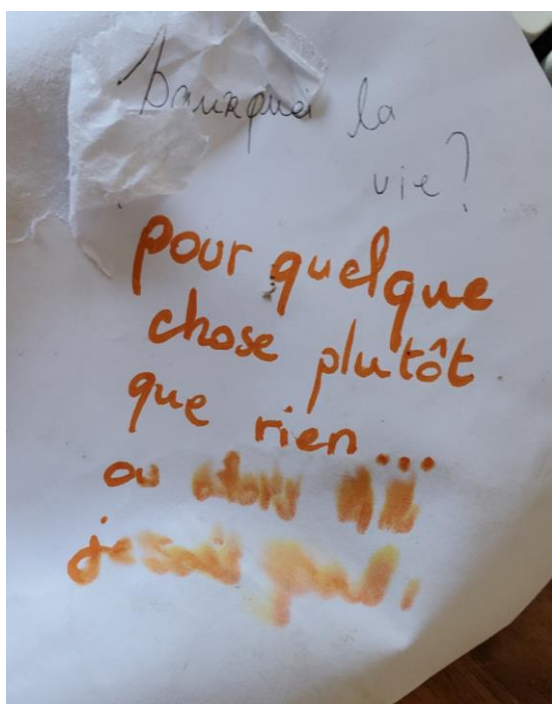 Pourquoi la
vie?
pour quelque
chose plutôt
que rien...
ou alors
je sais pas.